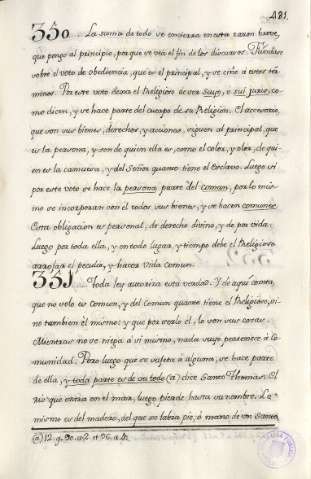 431.
350. La suma de todo se encierra en esta razon breve,
que pongo al principio, porque se vea el fin de los discursos. Fundase
sobre el voto de obediencia, que es el principal, y se ciñe a estos tér
minos. Por este voto dexa el Religioso de ser suyo, o sui juris, co
mo dicen, y se hace parte del cuerpo de su Religión. El accesorio,
que son sus bienes, derechos, y acciones, siguen al principal, que
es la persona, y son de quien ella es, como el color, y olor, de qui
en es la camuesa, y del Señor quanto tiene el Esclavo. Luego si
por este voto se hace la persona parte del comun, por lo mis
mo se incorporan con el todos sus bienes, y se hacen comunes.
Esta obligacion es personal, de derecho divino, y de por vida:
Luego por toda ella, y en todo lugar, y tiempo debe el Religioso
arrojar el peculio, y hacer vida comun.
351. Toda ley autoriza esta verdad. Y de aqui consta,
que no solo es comun, y del comun quanto tiene el Religioso, si
no tambien el mismo: y que por serlo el, lo son sus cosas.
Mientras no se niega a si mismo, nada suyo pertenece a la Co
munidad. Pero luego que se sujeta a alguna, se hace parte
de ella, y toda parte es de su todo (a) dice Santo Thomas. El
rio que entra en el mar, luego pierde hasta su nombre. Lo
mismo es del madero, del que se labra pie, o mano de un Santo,
(a) 12. q. 90. a. 2. et 96. a. 4.